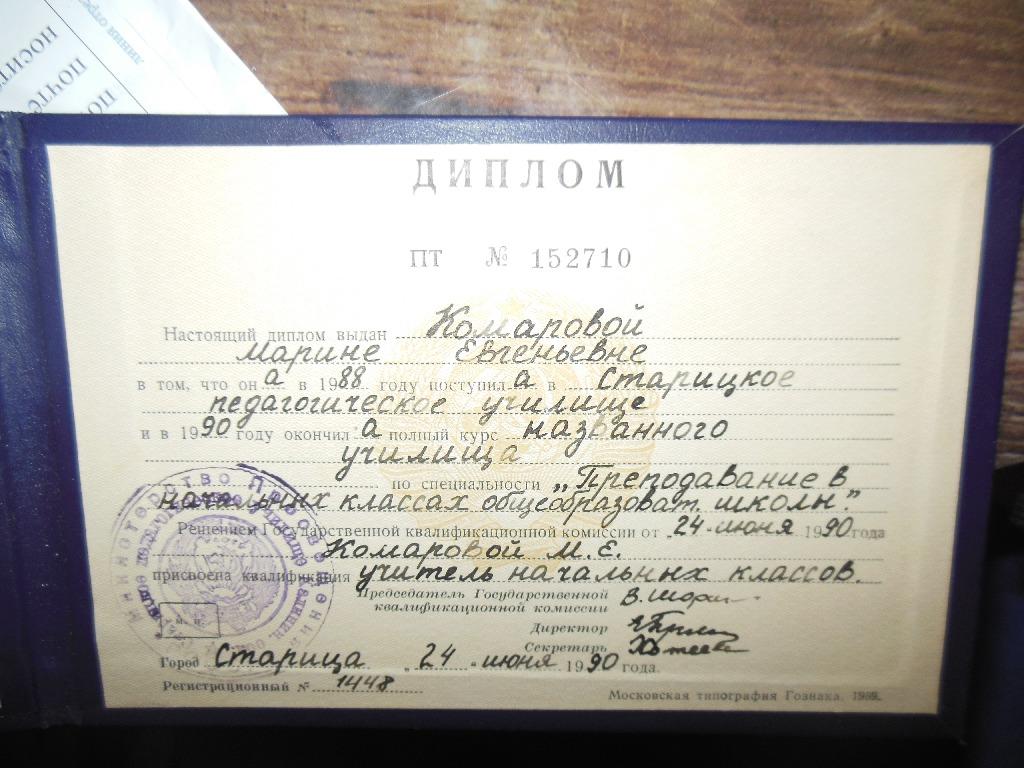 линия отре
НОСИТ
ПОЧТО
ПО
ДИПЛОМ
ПТ № 152710
Настоящий диплом выдан Комаровой
Марине Евгеньевне
в том, что он а в 1988 году поступил а в Старицкое
педагогическое училище
и в 1990 году окончил а полный курс названного
училища
по специальности „Преподавание в
начальных классах общеобразоват. школы".
Решением Государственной квалификационной комиссии от „24" июня 1990 года
Комаровой М. Е.
присвоена квалификация учитель начальных классов.
Председатель Государственной
квалификационной комиссии
Директор
Секретарь
Город Старица „24" июня 1990 года.
Регистрационный № 1448
Московская типография Гознака. 1989.
Министерство Просвещения
М. П.